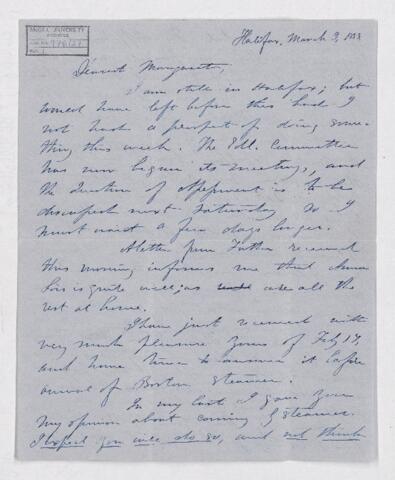 McGILL UNIVERSITY
ARCHIVES
ACC. NO. 
REF. 
Halifax, March 9,
Dearest Margaret,
I am still in Halifax; but
would have left before this had I
not had a prospect of doing some-
thing this week. The Edl. Committee
has now begun its meetings, and
the question of is to be
discussed next Saturday so I
must wait a few days longer.
A letter from Father received
this morning informs me that Anna
Lois is quite well; as are all the
rest at home.
I have just received with
very much pleasure yours of Feby 17,
and have time to answer it before
arrival of Boston Steamer.
In my last I gave you
my opinion about coming Steamer.
I expect you will do so, and not think